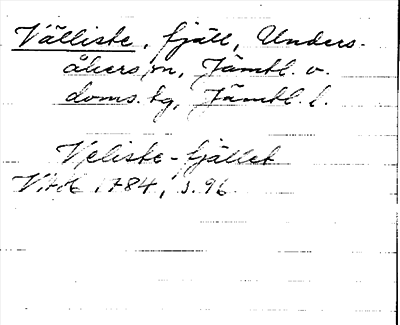 Välliste, fjäll, Unders-
åkers sn, Jämtl. v.
doms. tg, Jämtl. l.
Veliste-fjället
1784, s. 96